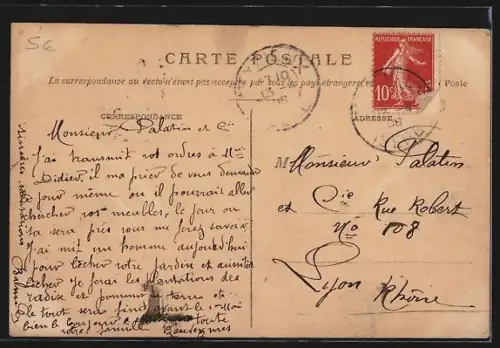 5€
CARTE POSTALE
La correspondance au recto n'étant pas acceptée par tous les pays étrangers, se Poste
RÉPUBLIQUE FRANÇAISE
10
CORRESPONDANCE
ADRESSE
Monsieur Palatin et Cie
J'ai transmit vos ordres à Mr
Didier il ma prié de vous demander
pour même ou il pourrait aller
chercher vos meubles, le jour ou
sa sera près vous me ferez savoir.
J'ai mit un homme aujourd'hui
pour bêcher votre jardin et aussitôt
bêcher je ferai les plantations des
radis et pommes terre etc
le tout sera fini avant le 1er Mai
bien le bonjour à toute
votre famille
sincères salutations
M Monsieur Palatin
et Cie Rue Robert
No 108
Lyon
Rhône